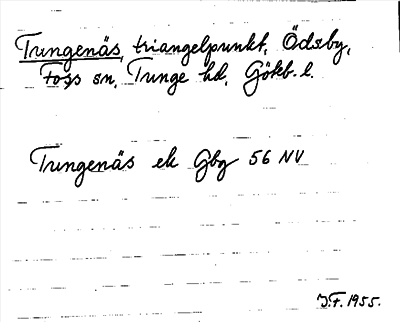 Tungenäs, triangelpunkt, Ödsby,
Foss sn, Tunge hd, Götkb. l.
Tungenäs ek Gbg 56 NV
J.F. 1955.